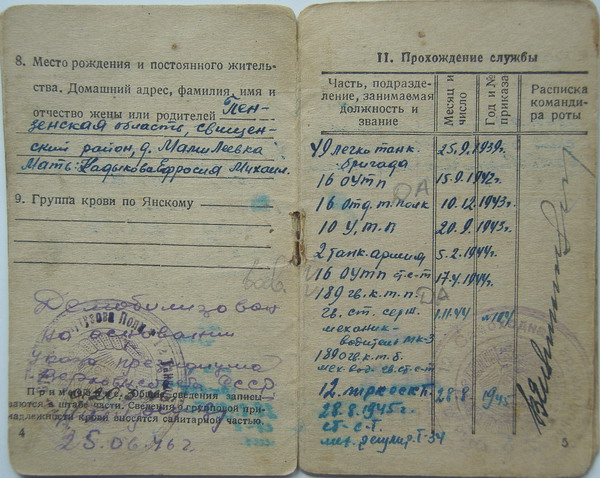 8. Место рождения и постоянного житель-
ства. Домашний адрес, фамилия, имя и
отчество жены или родителей Пен-
зенская область, свищен-
ский район, д.
Мать: Кадыкова Ефросия Михаил.
9. Группа крови по Янскому
Демобилизован
на основании
Указа президиума
Верховного СССР
Примечание. Общие сведения записы-
ваются в штабе части. Сведения о групповой при-
надлежности крови вносятся санитарной частью.
25.06.46г.
4
II. Прохождение службы
Часть, подразде-
ление, занимаемая
должность и
звание
Месяц и
число
Год и №
приказа
Расписка
команди-
ра роты
49 легко танк. 25.9. 1939г.
бригада
16 ОУТП 15.9. 1942г.
16 Отд. т. полк 10.12. 1943г.
10 У.т.п 20.9. 1943г.
2 танк. армия 5.2. 1944г.
16 ОУТП 17.4. 1944г.
ДА
189 гв. к. т. п.
ДА
гв. ст. серж. 1.11.44
механик-
водитель МК-3
гв. ст. с-т
28.8 1945
28.8.1945г.
ст. с-т.
Т-34
5